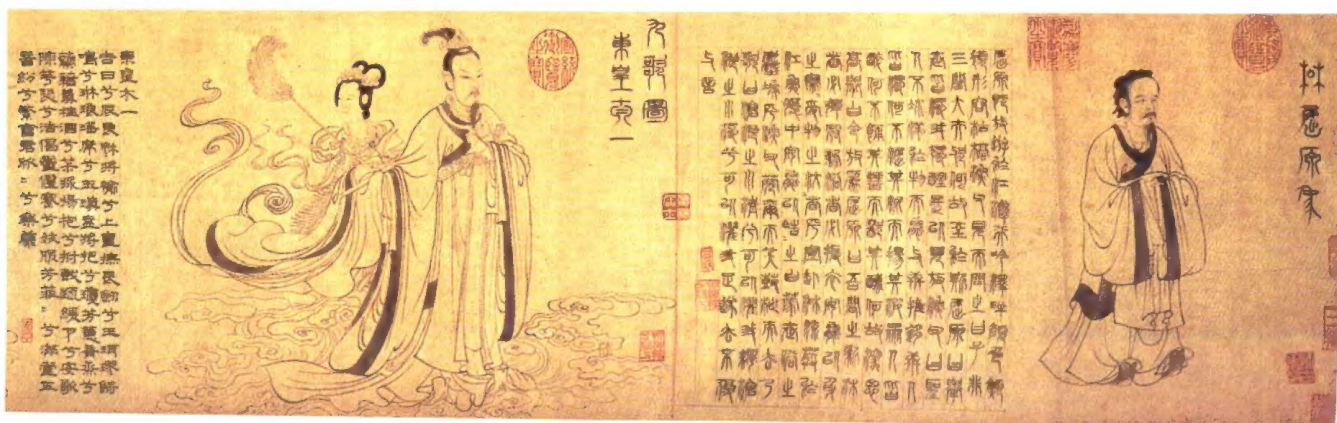 楚屈原象
屈原既放游於江潭行吟澤畔顏色憔
悴形容枯槁漁父見而問之曰子非
三閭大夫與何故至於斯屈原曰舉
世皆濁我獨醒是以見放漁父曰聖
人不凝滯於物而能與世推移
皆濁何不淈其泥而揚其波眾人皆
醉何不餔其糟而歠其醨何故深思
高舉自令放為屈原曰吾聞之新沐
者必彈冠新浴者必振衣安能以身
之察察受物之汶汶者乎寧赴湘流葬於
江魚腹中安能以皓皓之白蒙世俗之
塵埃乎漁父莞爾而笑鼓枻而去乃
歌曰滄浪之水清兮可以濯我纓滄
浪之水濁兮可以濯我足遂去不復
與言
九歌圖
東皇太一
東皇太一
吉日兮辰良穆將愉兮上皇撫長劍兮玉珥璆鏘
鳴兮琳琅瑤席兮玉瑱盍將把兮瓊芳蕙肴烝兮
蘭藉奠桂酒兮菽漿揚枹兮拊鼓疏緩節兮安歌
陳竽瑟兮浩倡靈偃蹇兮姣服芳菲〻兮滿堂五
音紛兮繁會君欣〻兮樂康